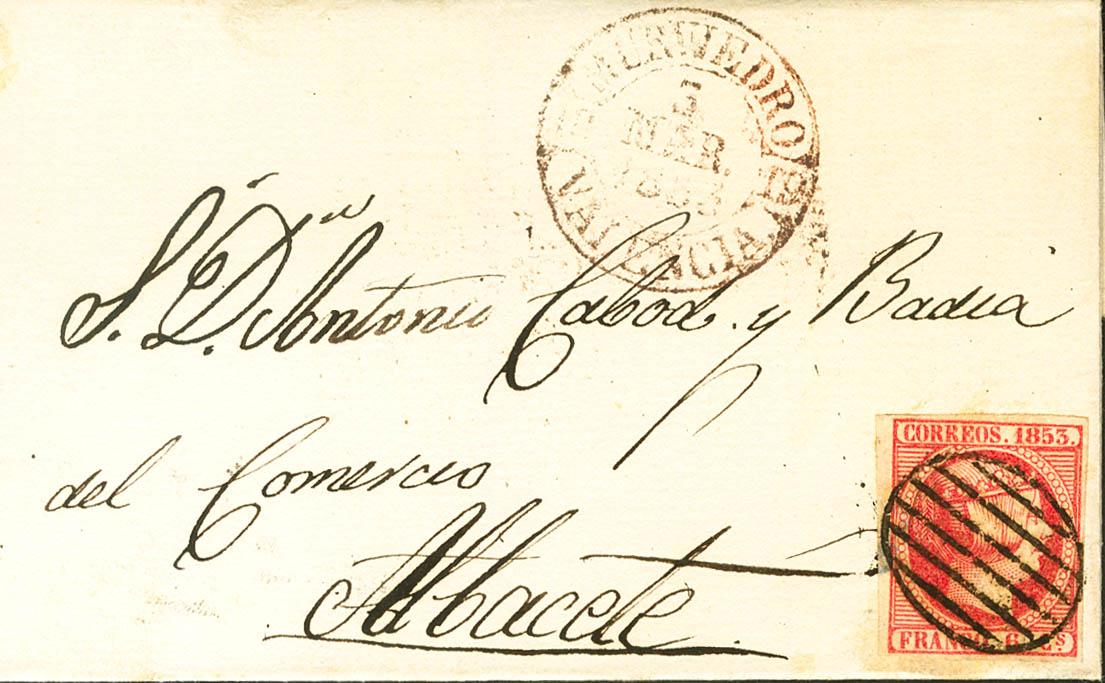 MURVIEDRO
5
MAR.
1853
VALENCIA.
S. D.ⁿ Antonio Cabod y Badia
del Comercio
Albacete
CORREOS. 1853.
FRANCO. 6 C.ˢ